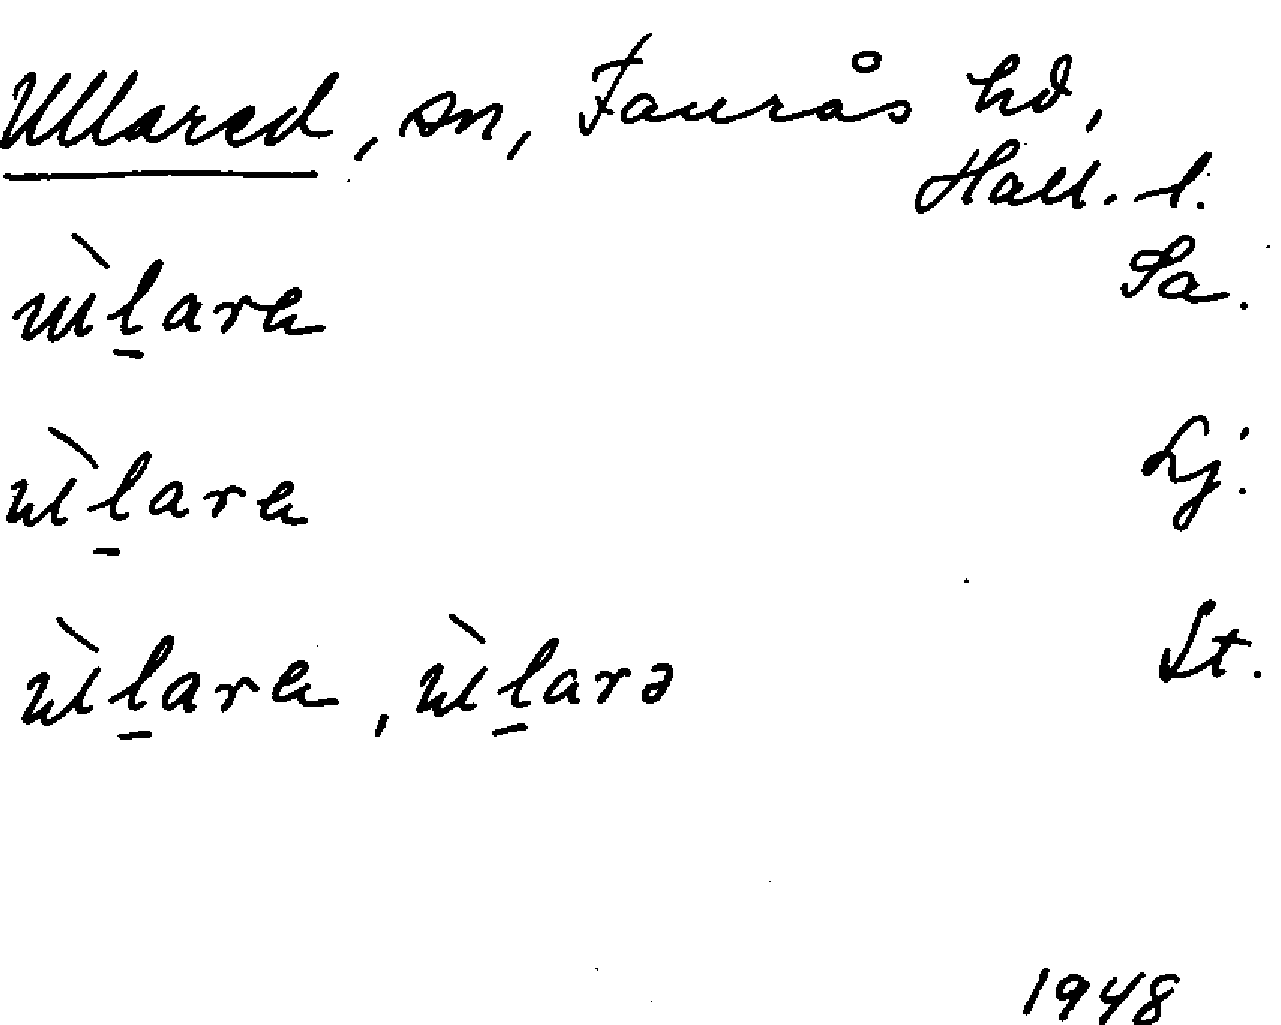 Ullared, sn, Faurås hd,
Hall. l.
ùl̲ara Sa.
ùl̲ara Lj.
ùl̲ara, ùl̲arə St.
1948